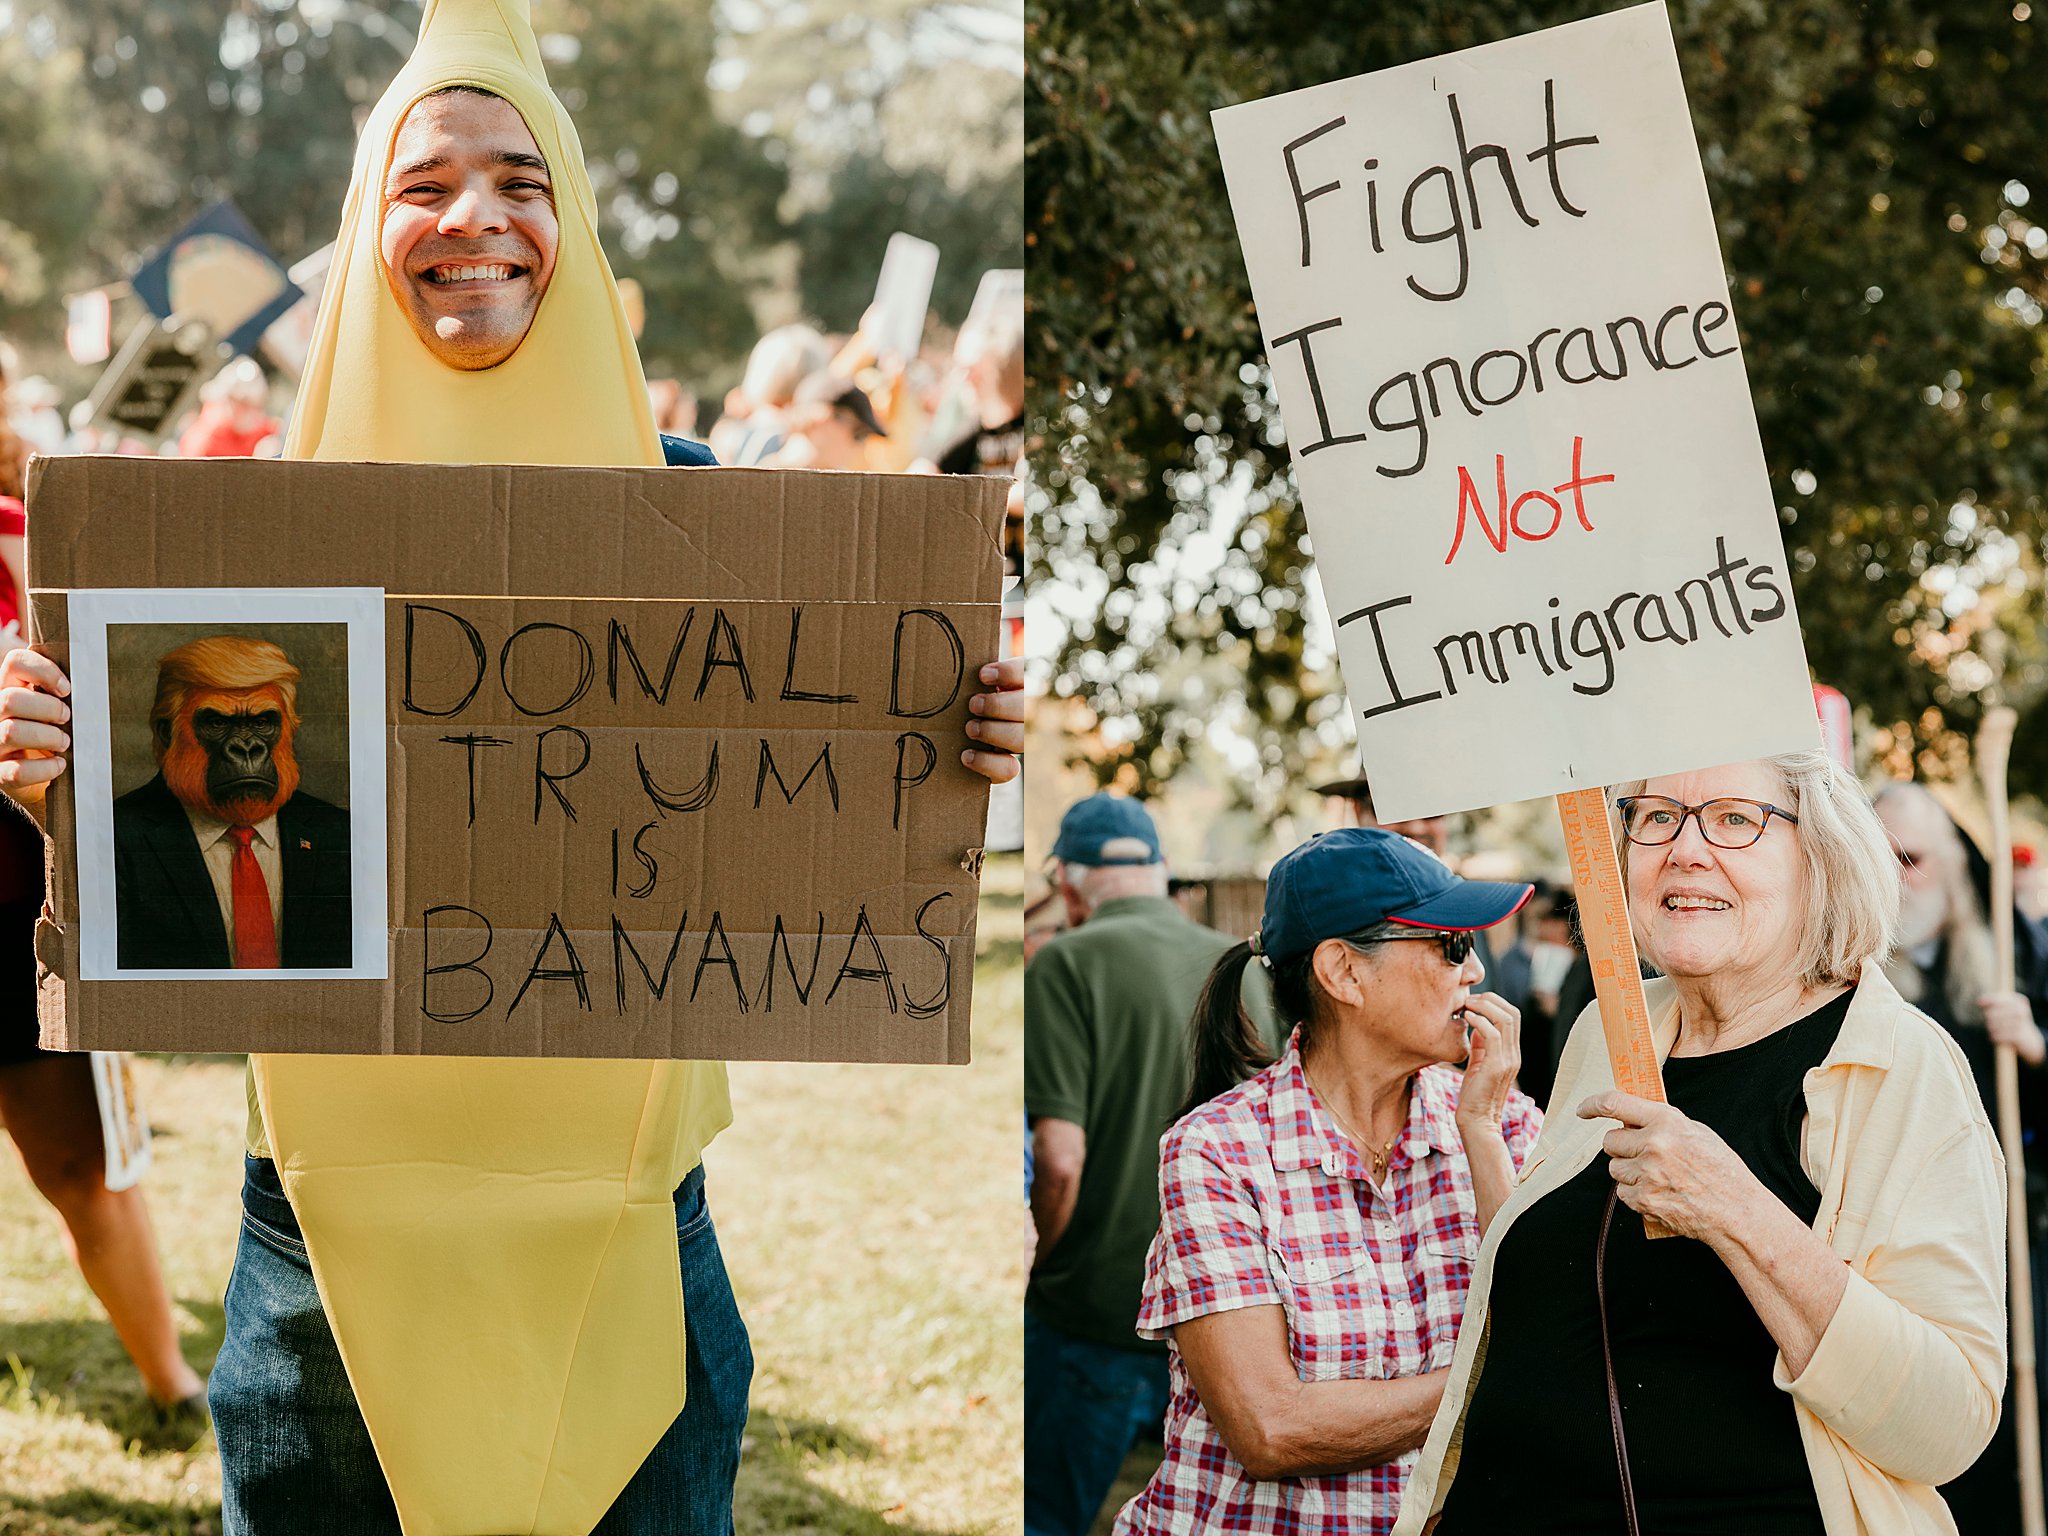 DONALD
TRUMP
IS
BANANAS
Fight
Ignorance
Not
Immigrants
ST PAINTS